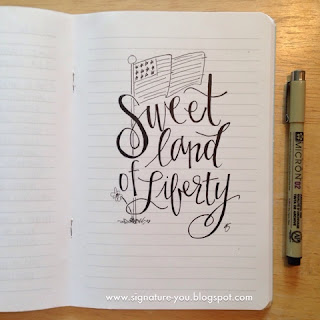 Sweet
land
of Liberty
MICRON 02
www.signature-you.blogspot.com